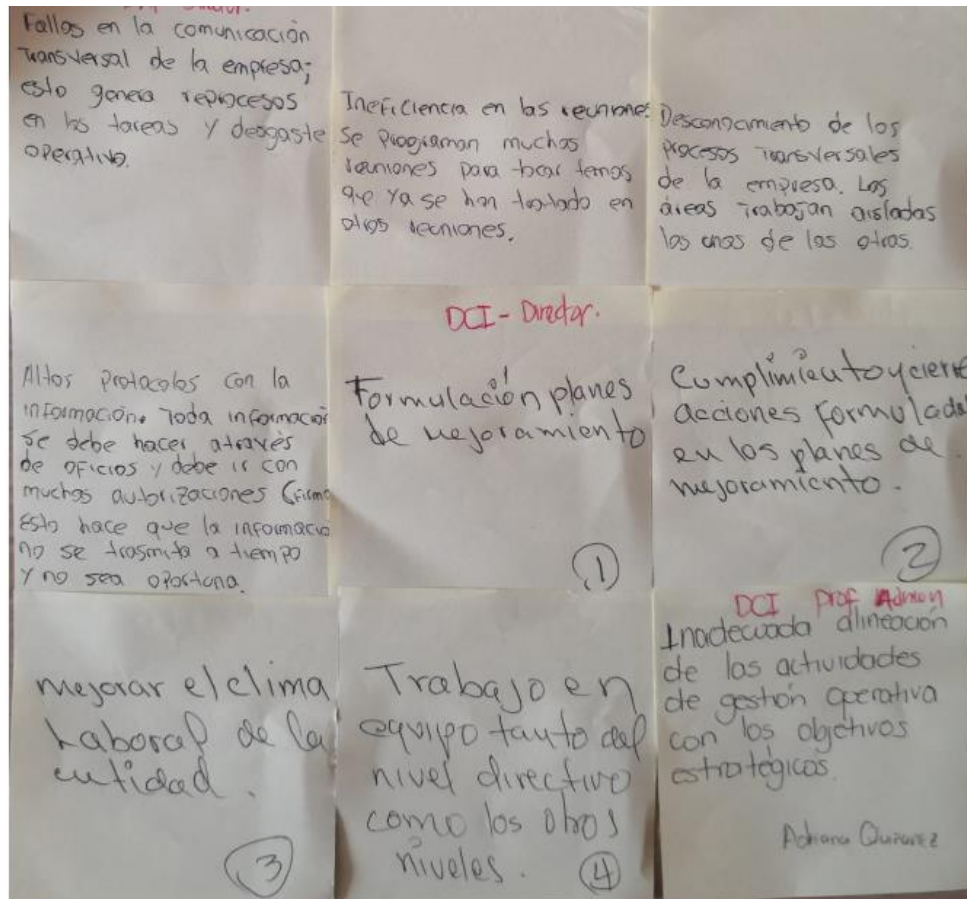 Fallos en la comunicación
transversal de la empresa;
esto genera reprocesos
en las tareas y desgaste
operativo.
Ineficiencia en las reuniones.
Se programan muchas
reuniones para tocar temas
que ya se han tratado en
otras reuniones.
Desconocimiento de los
procesos transversales
de la empresa. Las
áreas trabajan aisladas
las unas de las otras.
Altos protocolos con la
información. Toda informació
se debe hacer a través
de oficios y debe ir con
muchas autorizaciones (firma
Esto hace que la informacio
no se trasmita a tiempo
y no sea oportuna.
DCI - Director.
Formulación planes
de mejoramiento
1
Cumplimiento y cierre
acciones formulada
en los planes de
mejoramiento.
2
mejorar el clima
Laboral de la
entidad.
3
Trabajo en
equipo tanto del
nivel directivo
como los otros
niveles.
4
DCI Prof Admon
Inadecuada alineación
de las actividades
de gestión operativa
con los objetivos
estratégicos.
Adriana